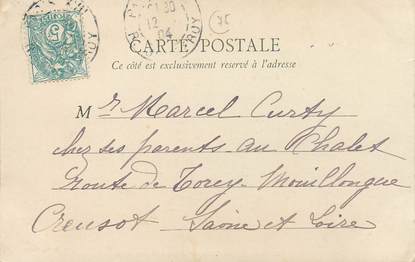 CARTE POSTALE
Ce côté est exclusivement reservé à l'adresse
Mr. Marcel Curty
chez ses parents au Chalet
route de Torcy Mouillongue
Creusot Saône et Loire